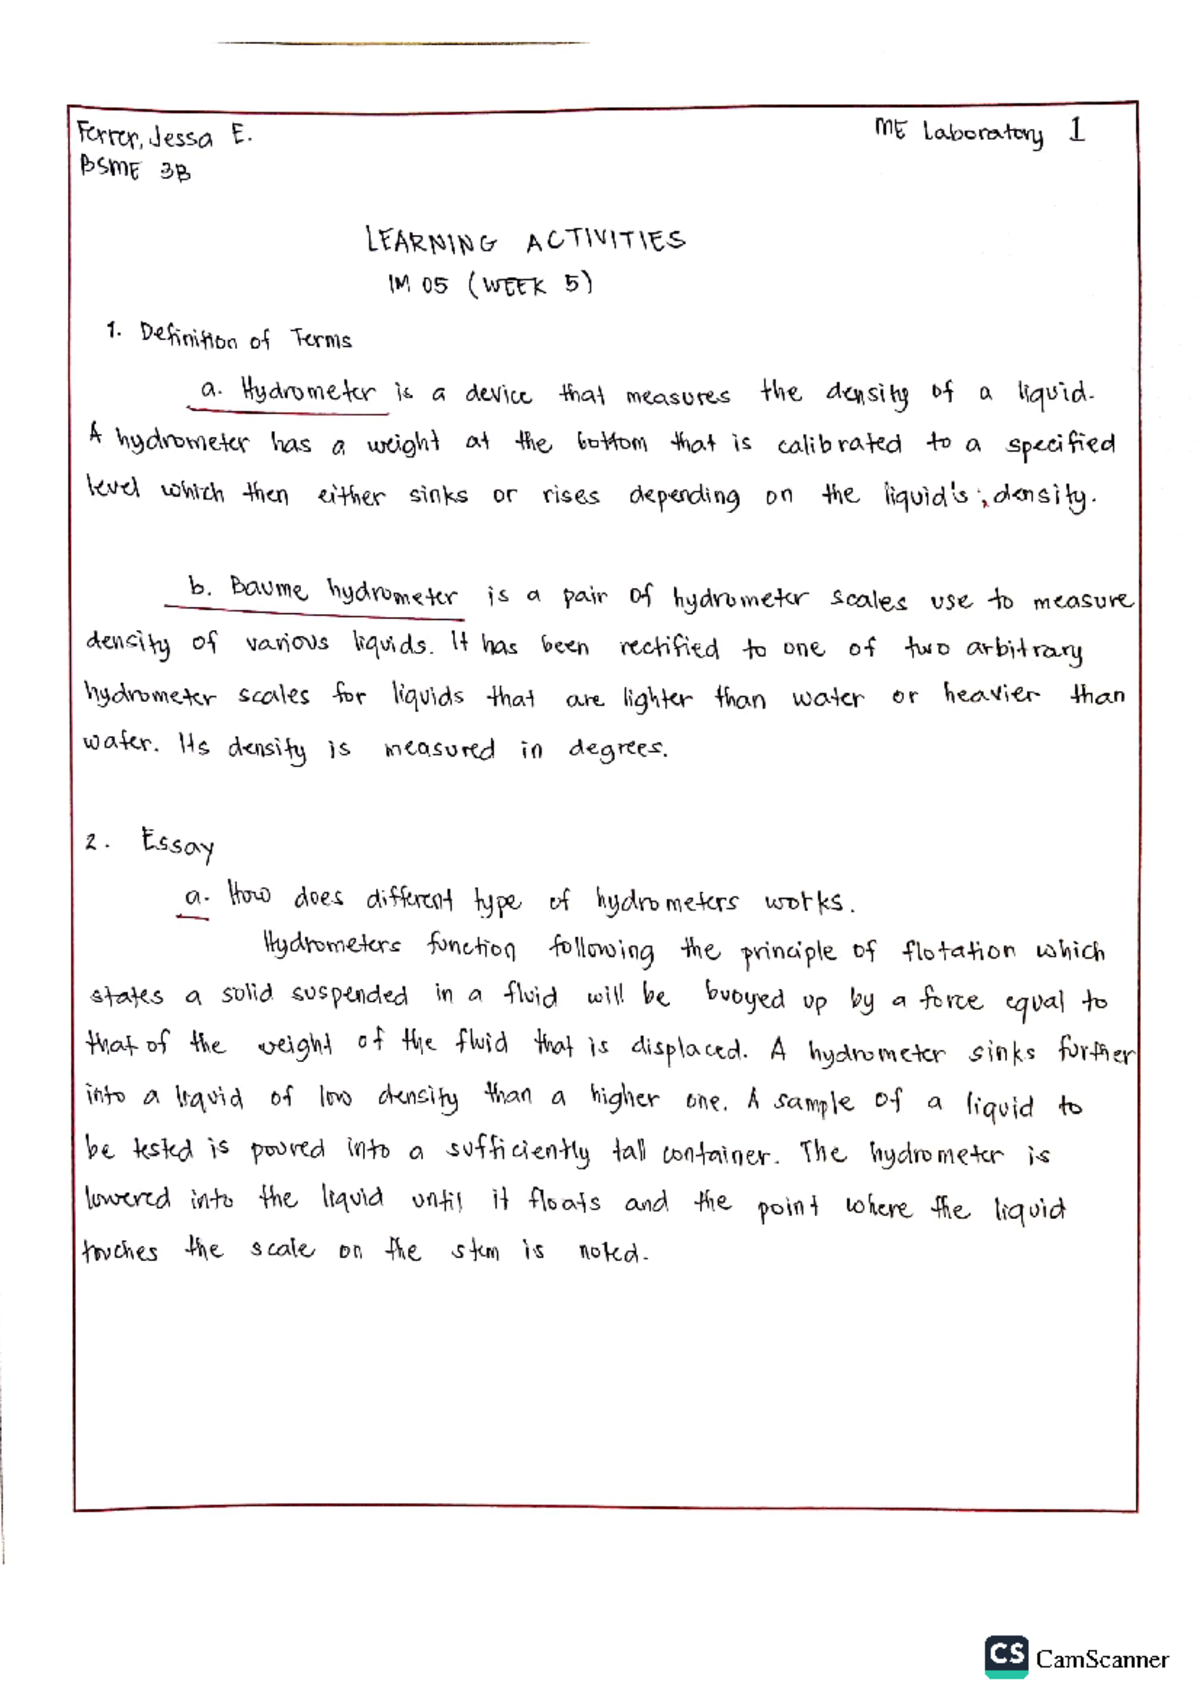 Ferrer, Jessa E.
ME Laboratory 1
BSME 3B
LEARNING ACTIVITIES
IM 05 (WEEK 5)
1. Definition of Terms
a. Hydrometer is a device that measures the density of a liquid.
A hydrometer has a weight at the bottom that is calibrated to a specified
level which then either sinks or rises depending on the liquid's density.
b. Baume hydrometer is a pair of hydrometer scales use to measure
density of various liquids. It has been rectified to one of two arbitrary
hydrometer scales for liquids that are lighter than water or heavier than
water. Its density is measured in degrees.
2. Essay
a. How does different type of hydrometers works.
Hydrometers function following the principle of flotation which
states a solid suspended in a fluid will be buoyed up by a force equal to
that of the weight of the fluid that is displaced. A hydrometer sinks further
into a liquid of low density than a higher one. A sample of a liquid to
be tested is poured into a sufficiently tall container. The hydrometer is
lowered into the liquid until it floats and the point where the liquid
touches the scale on the stem is noted.
CS CamScanner